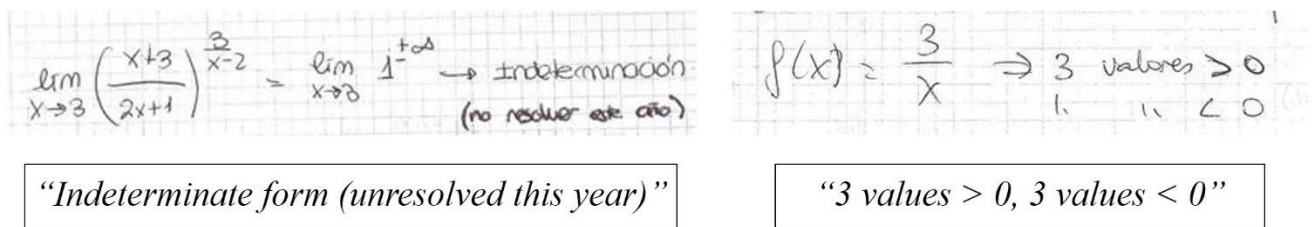 lim x→3 (x+3 / 2x+1)^(3/x-2) = lim x→3 1^±∞ → Indeterminación
(no resolver este año)
f(x) = 3/x ⇒ 3 valores > 0
ı. ıı < 0
“Indeterminate form (unresolved this year)”
“3 values > 0, 3 values < 0”